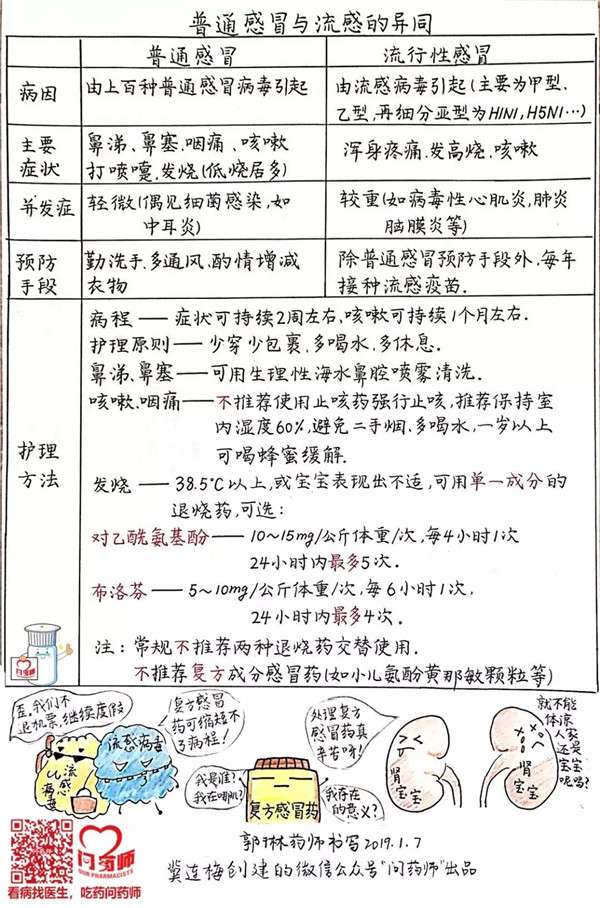 普通感冒与流感的异同
普通感冒
流行性感冒
病因
由上百种普通感冒病毒引起
由流感病毒引起(主要为甲型.
乙型,再细分亚型为H1N1,H5N1…)
主要
症状
鼻涕、鼻塞.咽痛、咳嗽
打喷嚏.发烧(低烧居多)
浑身疼痛.发高烧.咳嗽
并发症
轻微(偶见细菌感染,如
中耳炎)
较重(如病毒性心肌炎,肺炎
脑膜炎等)
预防
手段
勤洗手.多通风.酌情增减
衣物
除普通感冒预防手段外,每年
接种流感疫苗.
护理
方法
病程——症状可持续2周左右.咳嗽可持续1个月左右.
护理原则——少穿少包裹.多喝水.多休息.
鼻涕、鼻塞——可用生理性海水鼻腔喷雾清洗.
咳嗽.咽痛——不推荐使用止咳药强行止咳,推荐保持室
内湿度60%,避免二手烟.多喝水,一岁以上
可喝蜂蜜缓解.
发烧——38.5℃以上,或宝宝表现出不适,可用单一成分的
退烧药,可选:
对乙酰氨基酚——10~15mg/公斤体重/次,每4小时1次
24小时内最多5次.
布洛芬——5~10mg/公斤体重/次,每6小时1次,
24小时内最多4次.
注:常规不推荐两种退烧药交替使用.
不推荐复方成分感冒药(如小儿氨酚黄那敏颗粒等)
问药师
歪,我们不
退机票,继续度假
复方感冒
药可缩短不
了病程!
流感病毒
流感
病毒
我是谁?
我在哪儿?
复方感冒药
我存在
的意义?
处理复方
感冒药真
辛苦呀!
肾
宝宝
肾
宝宝
就不能
体谅
人家
还是
宝宝
呢吗?
问药师
OUR PHARMACISTS
看病找医生,吃药问药师
郭琳药师书写2019.1.7
冀连梅创建的微信公众号"问药师"出品